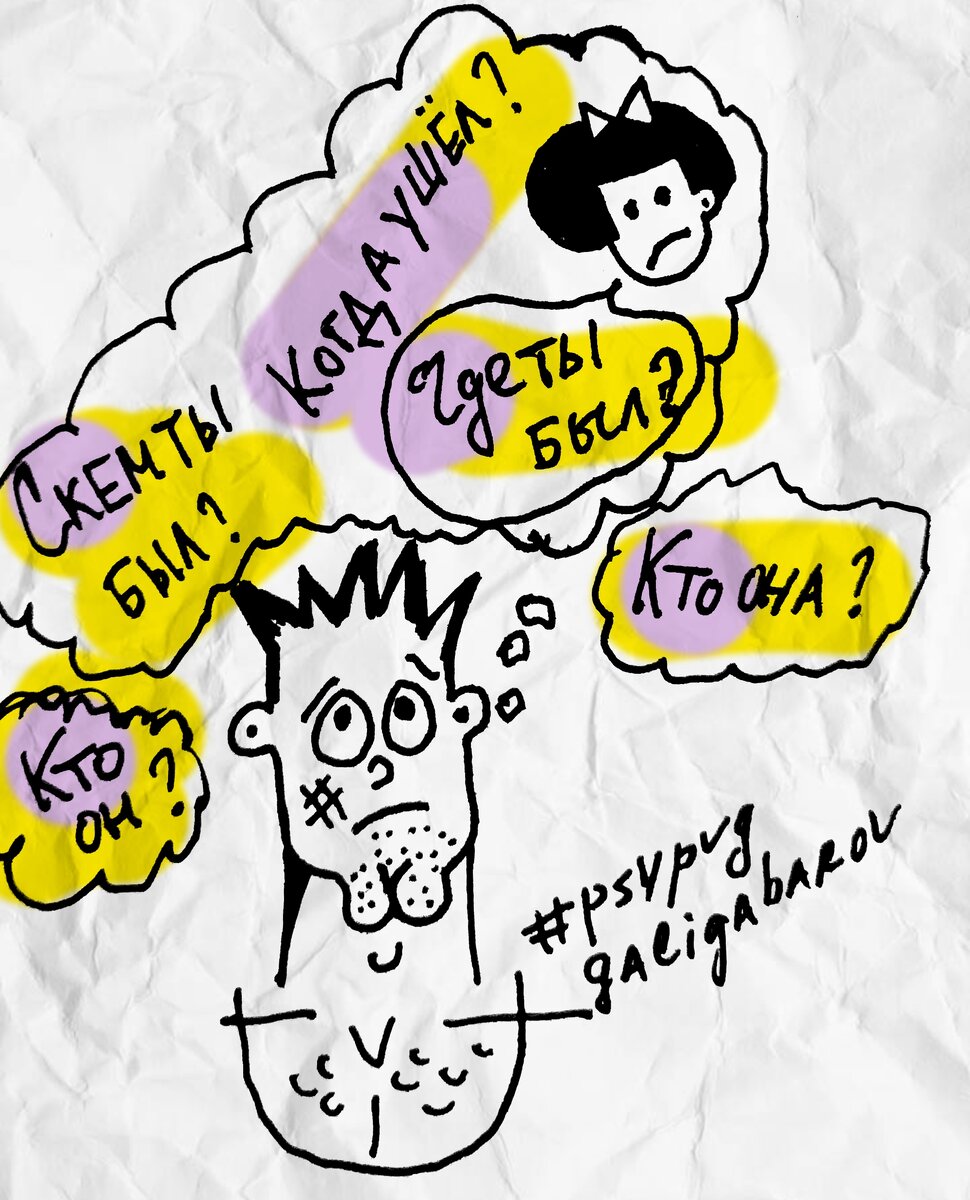 Когда ушёл?
Где ты
был?
С кем ты
был?
Кто она?
Кто
он?
#
#psvpvg
galigabarov